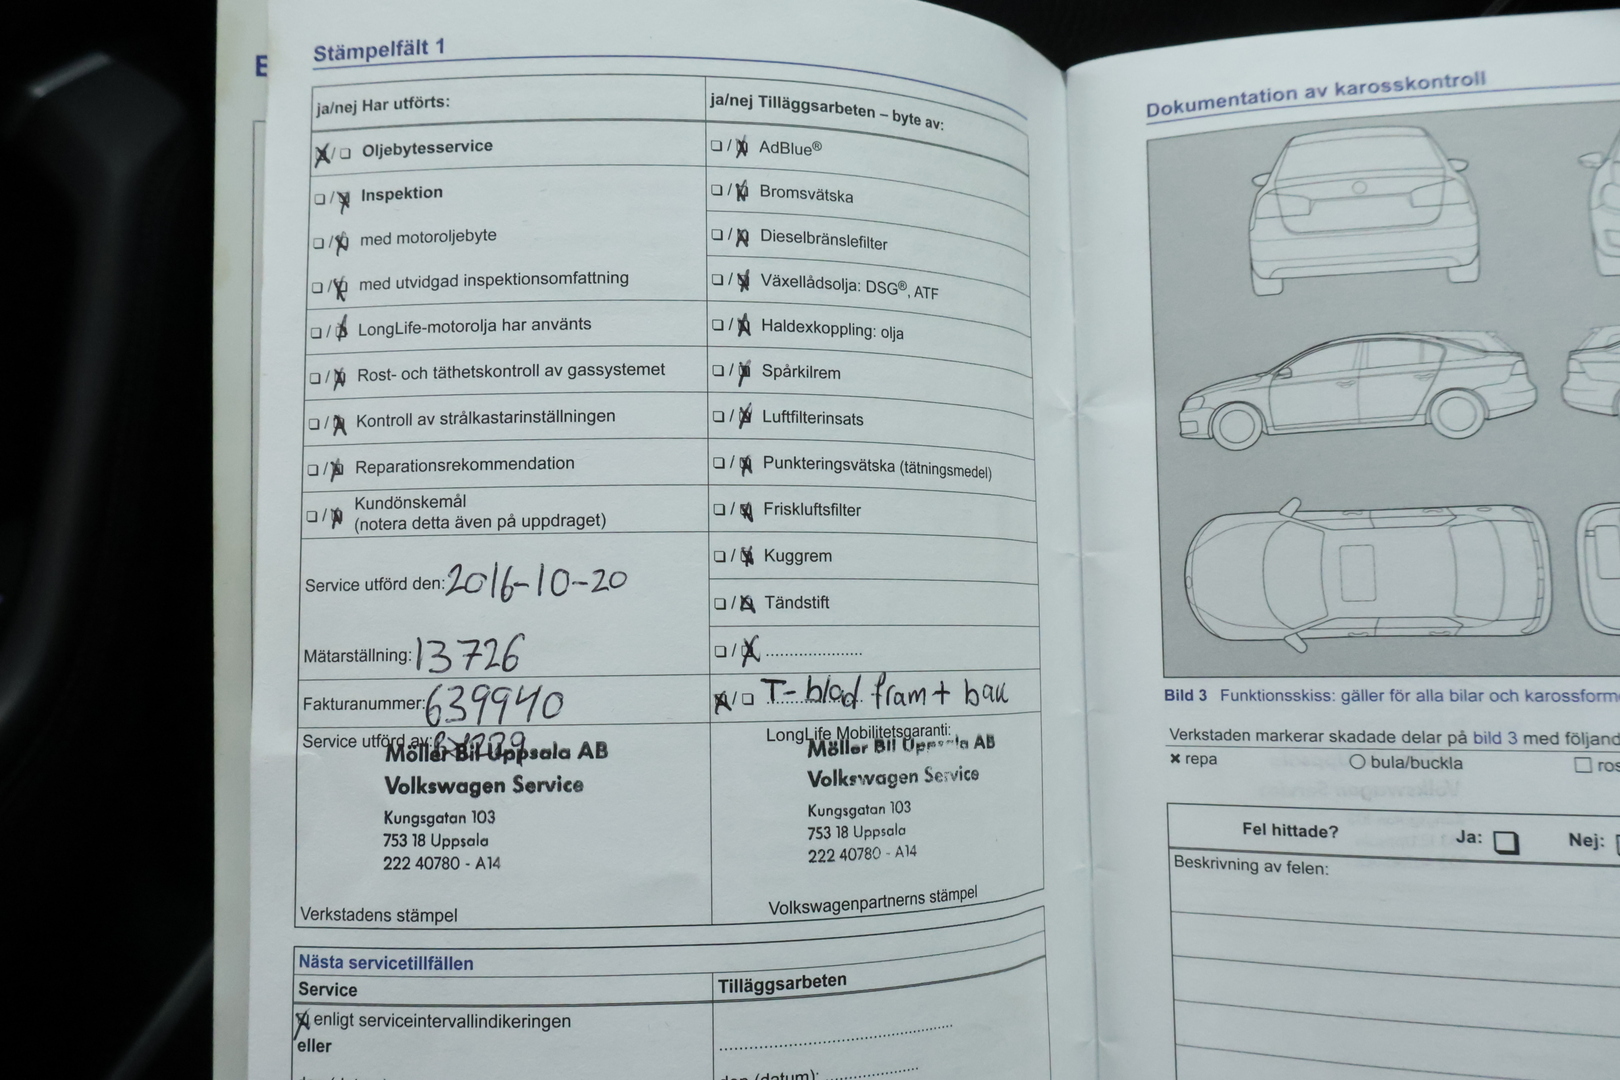 E
Stämpelfält 1
ja/nej Har utförts:
☒/☐ Oljebytesservice
☐/☒ Inspektion
☐/☒ med motoroljebyte
☐/☒ med utvidgad inspektionsomfattning
☐/☒ LongLife-motorolja har använts
☐/☒ Rost- och täthetskontroll av gassystemet
☐/☒ Kontroll av strålkastarinställningen
☐/☒ Reparationsrekommendation
☐/☒ Kundönskemål
(notera detta även på uppdraget)
Service utförd den: 2016-10-20
Mätarställning: 13726
Fakturanummer: 639940
Service utförd av:
Möller Bil Uppsala AB
Volkswagen Service
Kungsgatan 103
753 18 Uppsala
222 40780 - A14
Verkstadens stämpel
ja/nej Tilläggsarbeten – byte av:
☐/☒ AdBlue®
☐/☒ Bromsvätska
☐/☒ Dieselbränslefilter
☐/☒ Växellådsolja: DSG®, ATF
☐/☒ Haldexkoppling: olja
☐/☒ Spårkilrem
☐/☒ Luftfilterinsats
☐/☒ Punkteringsvätska (tätningsmedel)
☐/☒ Friskluftsfilter
☐/☒ Kuggrem
☐/☒ Tändstift
☐/☒ .....................
☒/☐ T-blad fram + bak
LongLife Mobilitetsgaranti:
Möller Bil Uppsala AB
Volkswagen Service
Kungsgatan 103
753 18 Uppsala
222 40780 - A14
Volkswagenpartnerns stämpel
Nästa servicetillfällen
Service
☒ enligt serviceintervallindikeringen
eller
Tilläggsarbeten
den (datum):
Dokumentation av karosskontroll
Bild 3 Funktionsskiss: gäller för alla bilar och karossform
Verkstaden markerar skadade delar på bild 3 med följand
× repa ○ bula/buckla ☐ ros
Fel hittade? Ja: ☐ Nej:
Beskrivning av felen: